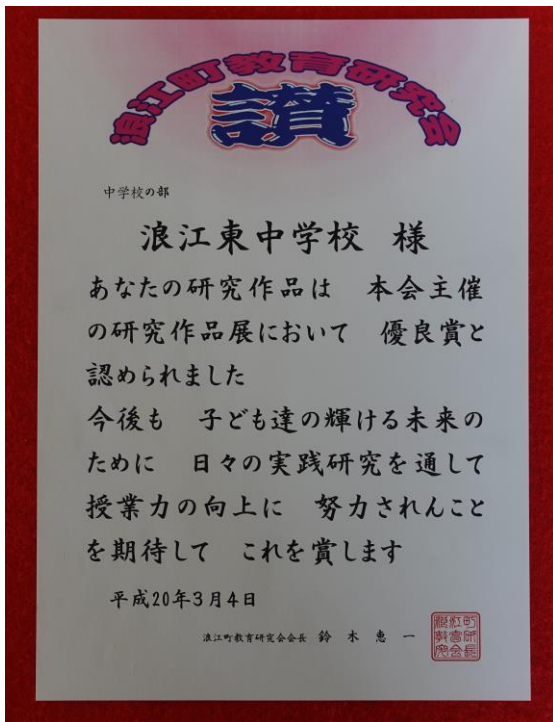 浪江町教育研究会
讃
中学校の部
浪江東中学校 様
あなたの研究作品は 本会主催
の研究作品展において 優良賞と
認められました
今後も 子ども達の輝ける未来の
ために 日々の実践研究を通して
授業力の向上に 努力されんこと
を期待して これを賞します
平成20年3月4日
浪江町教育研究会会長 鈴木惠一